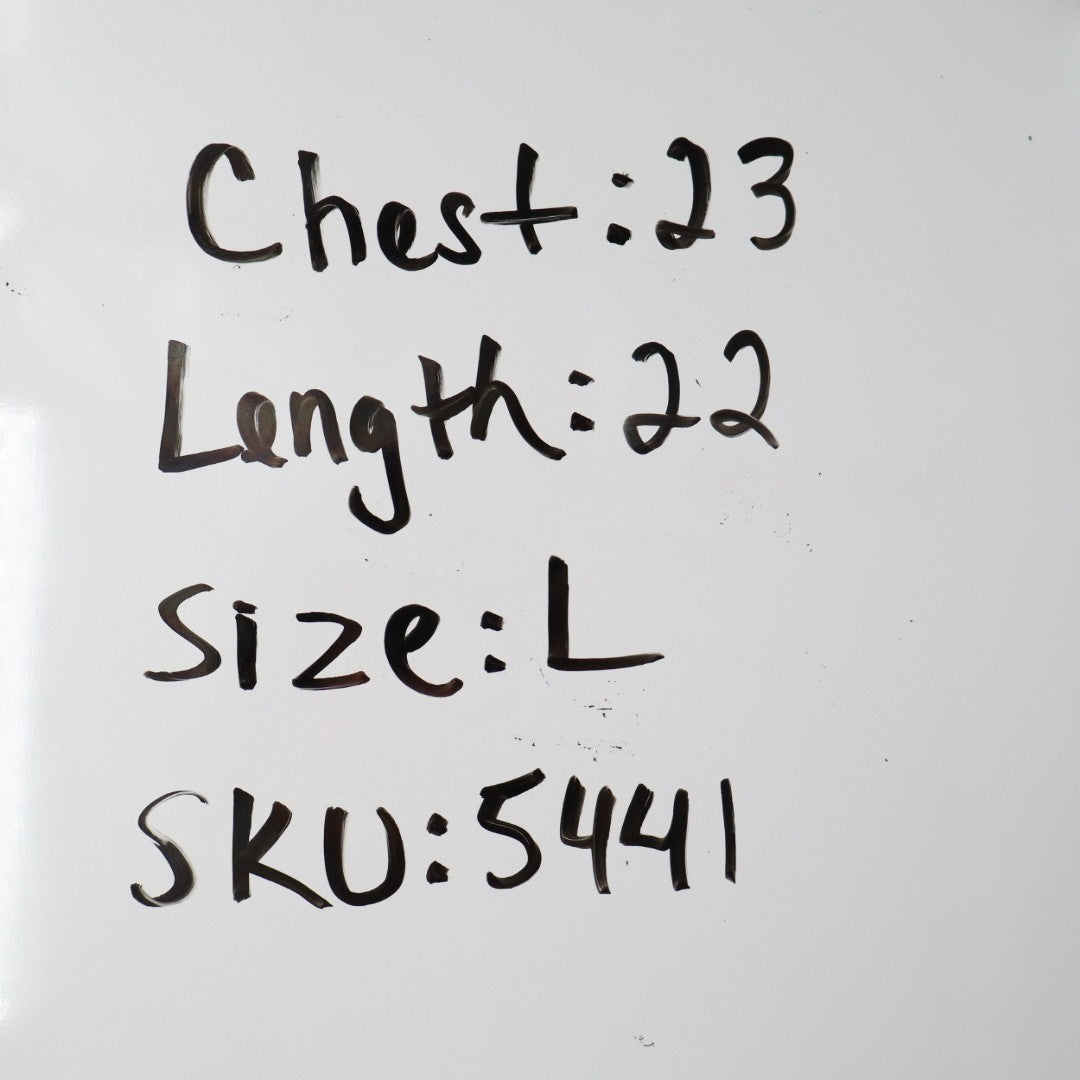 Chest:23
Length:22
Size:L
SKU:5441